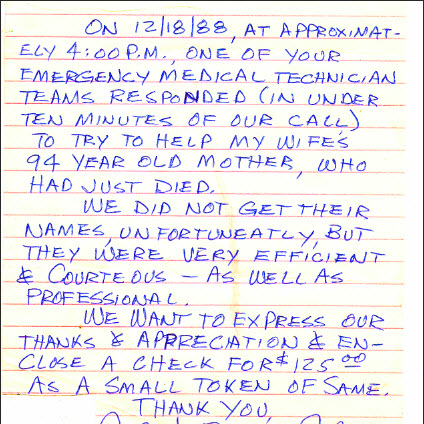 ON 12/18/88, AT APPROXIMAT-
ELY 4:00 P.M., ONE OF YOUR
EMERGENCY MEDICAL TECHNICIAN
TEAMS RESPONDED (IN UNDER
TEN MINUTES OF OUR CALL)
TO TRY TO HELP MY WIFE'S
94 YEAR OLD MOTHER, WHO
HAD JUST DIED.
WE DID NOT GET THEIR
NAMES, UNFORTUNEATLY, BUT
THEY WERE VERY EFFICIENT
& COURTEOUS – AS WELL AS
PROFESSIONAL.
WE WANT TO EXPRESS OUR
THANKS & APPRECIATION & EN-
CLOSE A CHECK FOR $125 00
AS A SMALL TOKEN OF SAME.
THANK YOU,